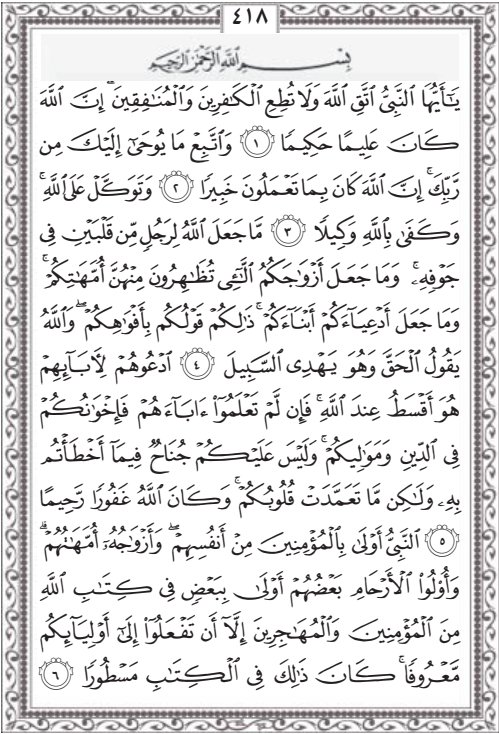 ٤١٨
بِسْمِ اللَّهِ الرَّحْمَٰنِ الرَّحِيمِ
يَٰٓأَيُّهَا ٱلنَّبِيُّ ٱتَّقِ ٱللَّهَ وَلَا تُطِعِ ٱلْكَٰفِرِينَ وَٱلْمُنَٰفِقِينَۗ إِنَّ ٱللَّهَ
كَانَ عَلِيمًا حَكِيمًا ١ وَٱتَّبِعْ مَا يُوحَىٰٓ إِلَيْكَ مِن
رَّبِّكَۚ إِنَّ ٱللَّهَ كَانَ بِمَا تَعْمَلُونَ خَبِيرًا ٢ وَتَوَكَّلْ عَلَى ٱللَّهِۚ
وَكَفَىٰ بِٱللَّهِ وَكِيلًا ٣ مَّا جَعَلَ ٱللَّهُ لِرَجُلٍ مِّن قَلْبَيْنِ فِي
جَوْفِهِۦۚ وَمَا جَعَلَ أَزْوَٰجَكُمُ ٱلَّٰٓـِٔي تُظَٰهِرُونَ مِنْهُنَّ أُمَّهَٰتِكُمْۚ
وَمَا جَعَلَ أَدْعِيَآءَكُمْ أَبْنَآءَكُمْۚ ذَٰلِكُمْ قَوْلُكُم بِأَفْوَٰهِكُمْۖ وَٱللَّهُ
يَقُولُ ٱلْحَقَّ وَهُوَ يَهْدِي ٱلسَّبِيلَ ٤ ٱدْعُوهُمْ لِأٓبَآئِهِمْ
هُوَ أَقْسَطُ عِندَ ٱللَّهِۚ فَإِن لَّمْ تَعْلَمُوٓا۟ ءَابَآءَهُمْ فَإِخْوَٰنُكُمْ
فِي ٱلدِّينِ وَمَوَٰلِيكُمْۚ وَلَيْسَ عَلَيْكُمْ جُنَاحٌ فِيمَآ أَخْطَأْتُم
بِهِۦ وَلَٰكِن مَّا تَعَمَّدَتْ قُلُوبُكُمْۚ وَكَانَ ٱللَّهُ غَفُورًا رَّحِيمًا
٥ ٱلنَّبِيُّ أَوْلَىٰ بِٱلْمُؤْمِنِينَ مِنْ أَنفُسِهِمْۖ وَأَزْوَٰجُهُۥٓ أُمَّهَٰتُهُمْۗ
وَأُو۟لُوا۟ ٱلْأَرْحَامِ بَعْضُهُمْ أَوْلَىٰ بِبَعْضٍ فِي كِتَٰبِ ٱللَّهِ
مِنَ ٱلْمُؤْمِنِينَ وَٱلْمُهَٰجِرِينَ إِلَّآ أَن تَفْعَلُوٓا۟ إِلَىٰٓ أَوْلِيَآئِكُم
مَّعْرُوفًاۚ كَانَ ذَٰلِكَ فِي ٱلْكِتَٰبِ مَسْطُورًا ٦